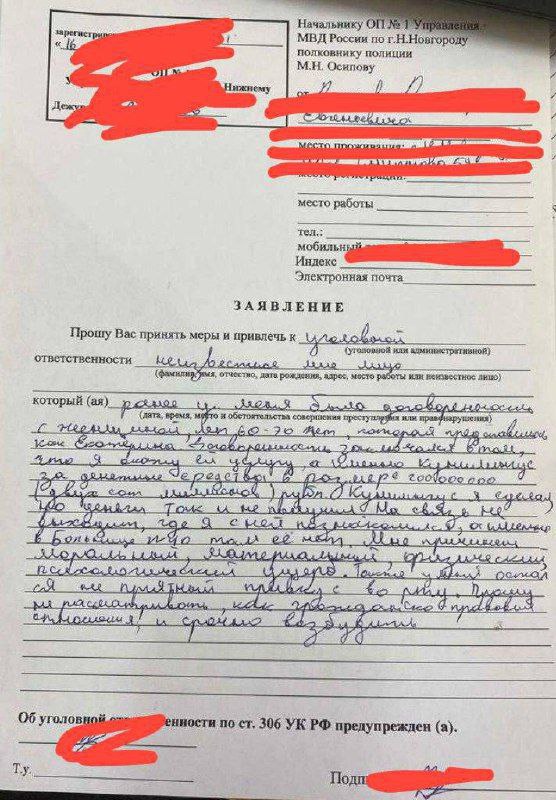 зарегистрирова
« 16
ОП №
Нижнему
Дежур
Начальнику ОП № 1 Управления
МВД России по г.Н.Новгороду
полковнику полиции
М.Н. Осипову
от
Евгеньевича
место проживания:
место регистрации:
место работы
тел.:
мобильный
Индекс
Электронная почта
ЗАЯВЛЕНИЕ
Прошу Вас принять меры и привлечь к уголовной
(уголовной или административной)
ответственности неизвестное мне лицо
(фамилия, имя, отчество, дата рождения, адрес, место работы или неизвестное лицо)
который (ая) ранее у меня была договоренность
(дата, время, место и обстоятельства совершения преступления или правонарушения)
с женщиной, лет 60-70 лет, которая представилась
как Екатерина. Договоренность заключалась в том,
что я окажу ей услугу, а именно Кунилингус
за денежные средства в размере 200000000
(двух сот миллионов) рубл. Кунилингус я сделал
но деньги так и не получил. На связь не
выходит, где я с ней познакомился, а именно
в Больнице №40 там её нет. Мне причинен
моральный, материальный, физический
психологический ущерб. Также у меня остал
ся не приятный привкус во рту. Прошу
не рассматривать, как гражданско правовые
отношения, и срочно возбудить
Об уголовной ответственности по ст. 306 УК РФ предупрежден (а).
Т.у.
Подп